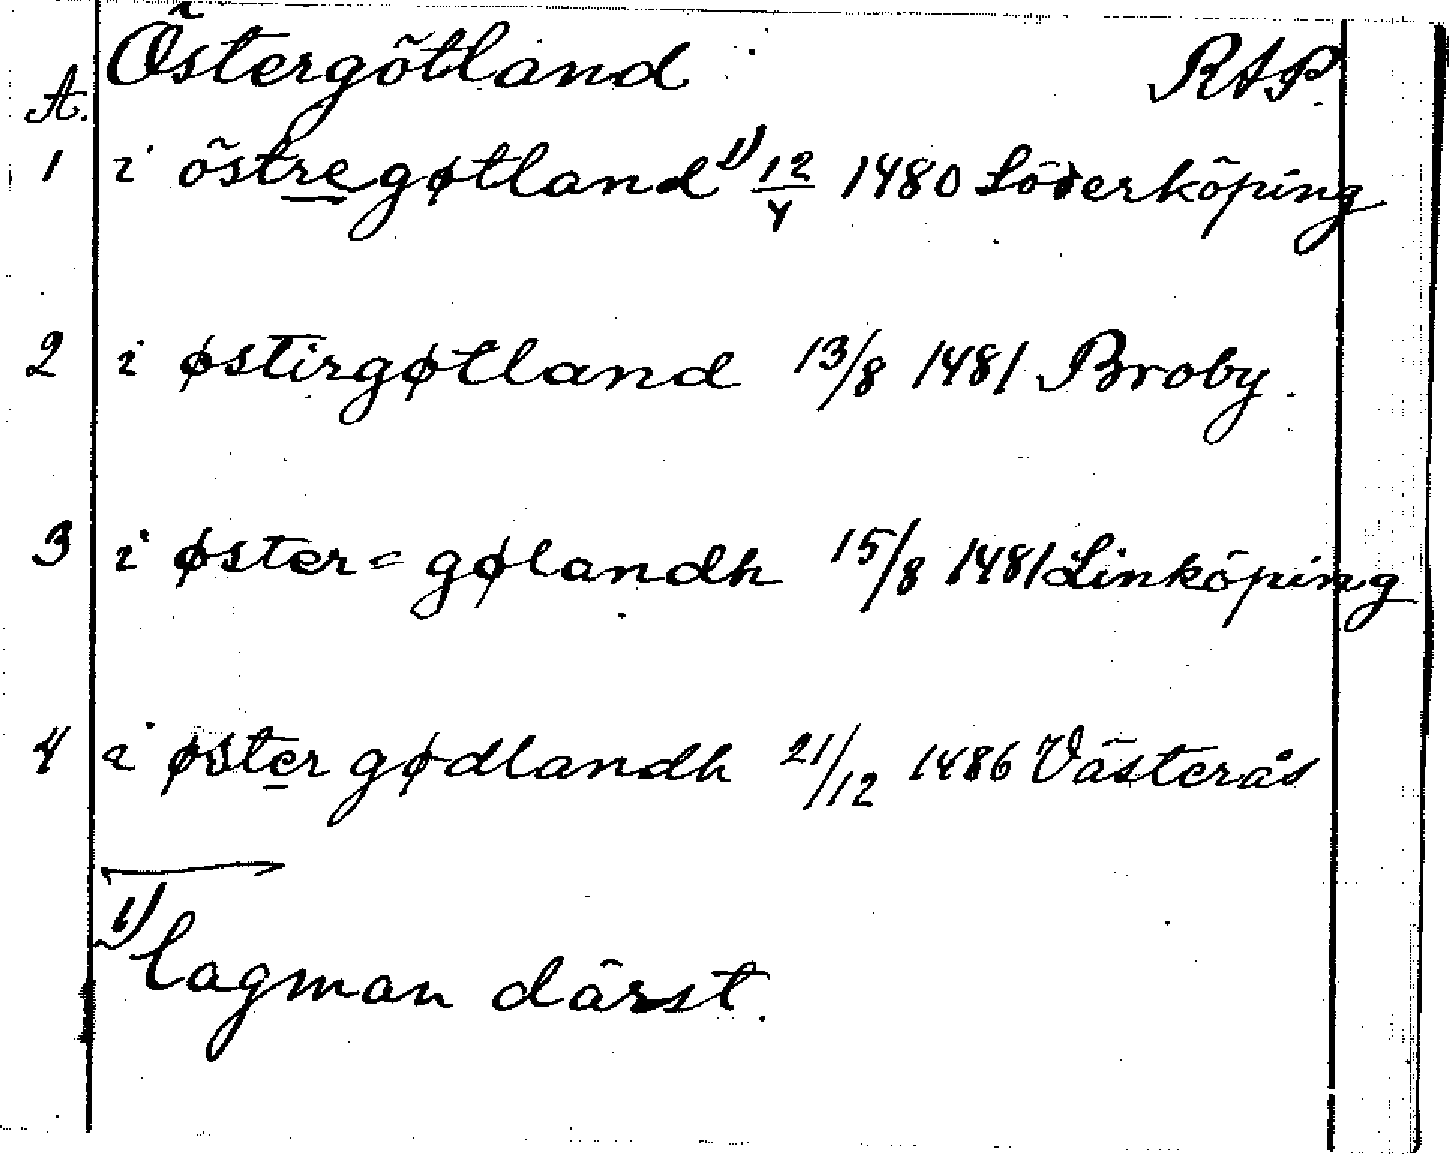 Östergötland RAP.
A.
1 i östregøtland 1) 12/4 1480 Söderköping
2 i østirgøtland 13/8 1481 Broby.
3 i øster=gølandh 15/8 1481 Linköping
4 i øster gødlandh 21/12 1486 Västerås
1) lagman därst.